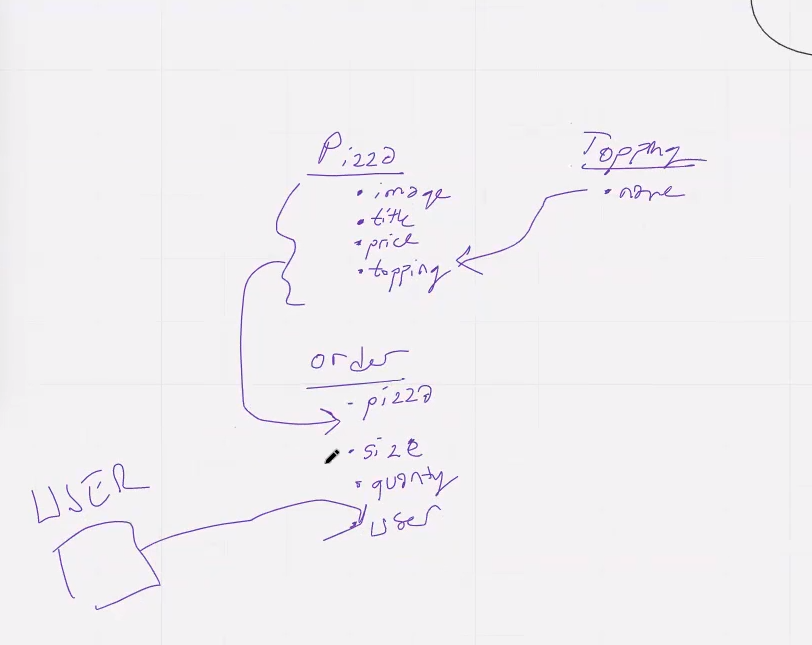 Pizza
• image
• title
• price
• topping
Topping
• name
order
- pizza
• size
• quanty
• user
USER